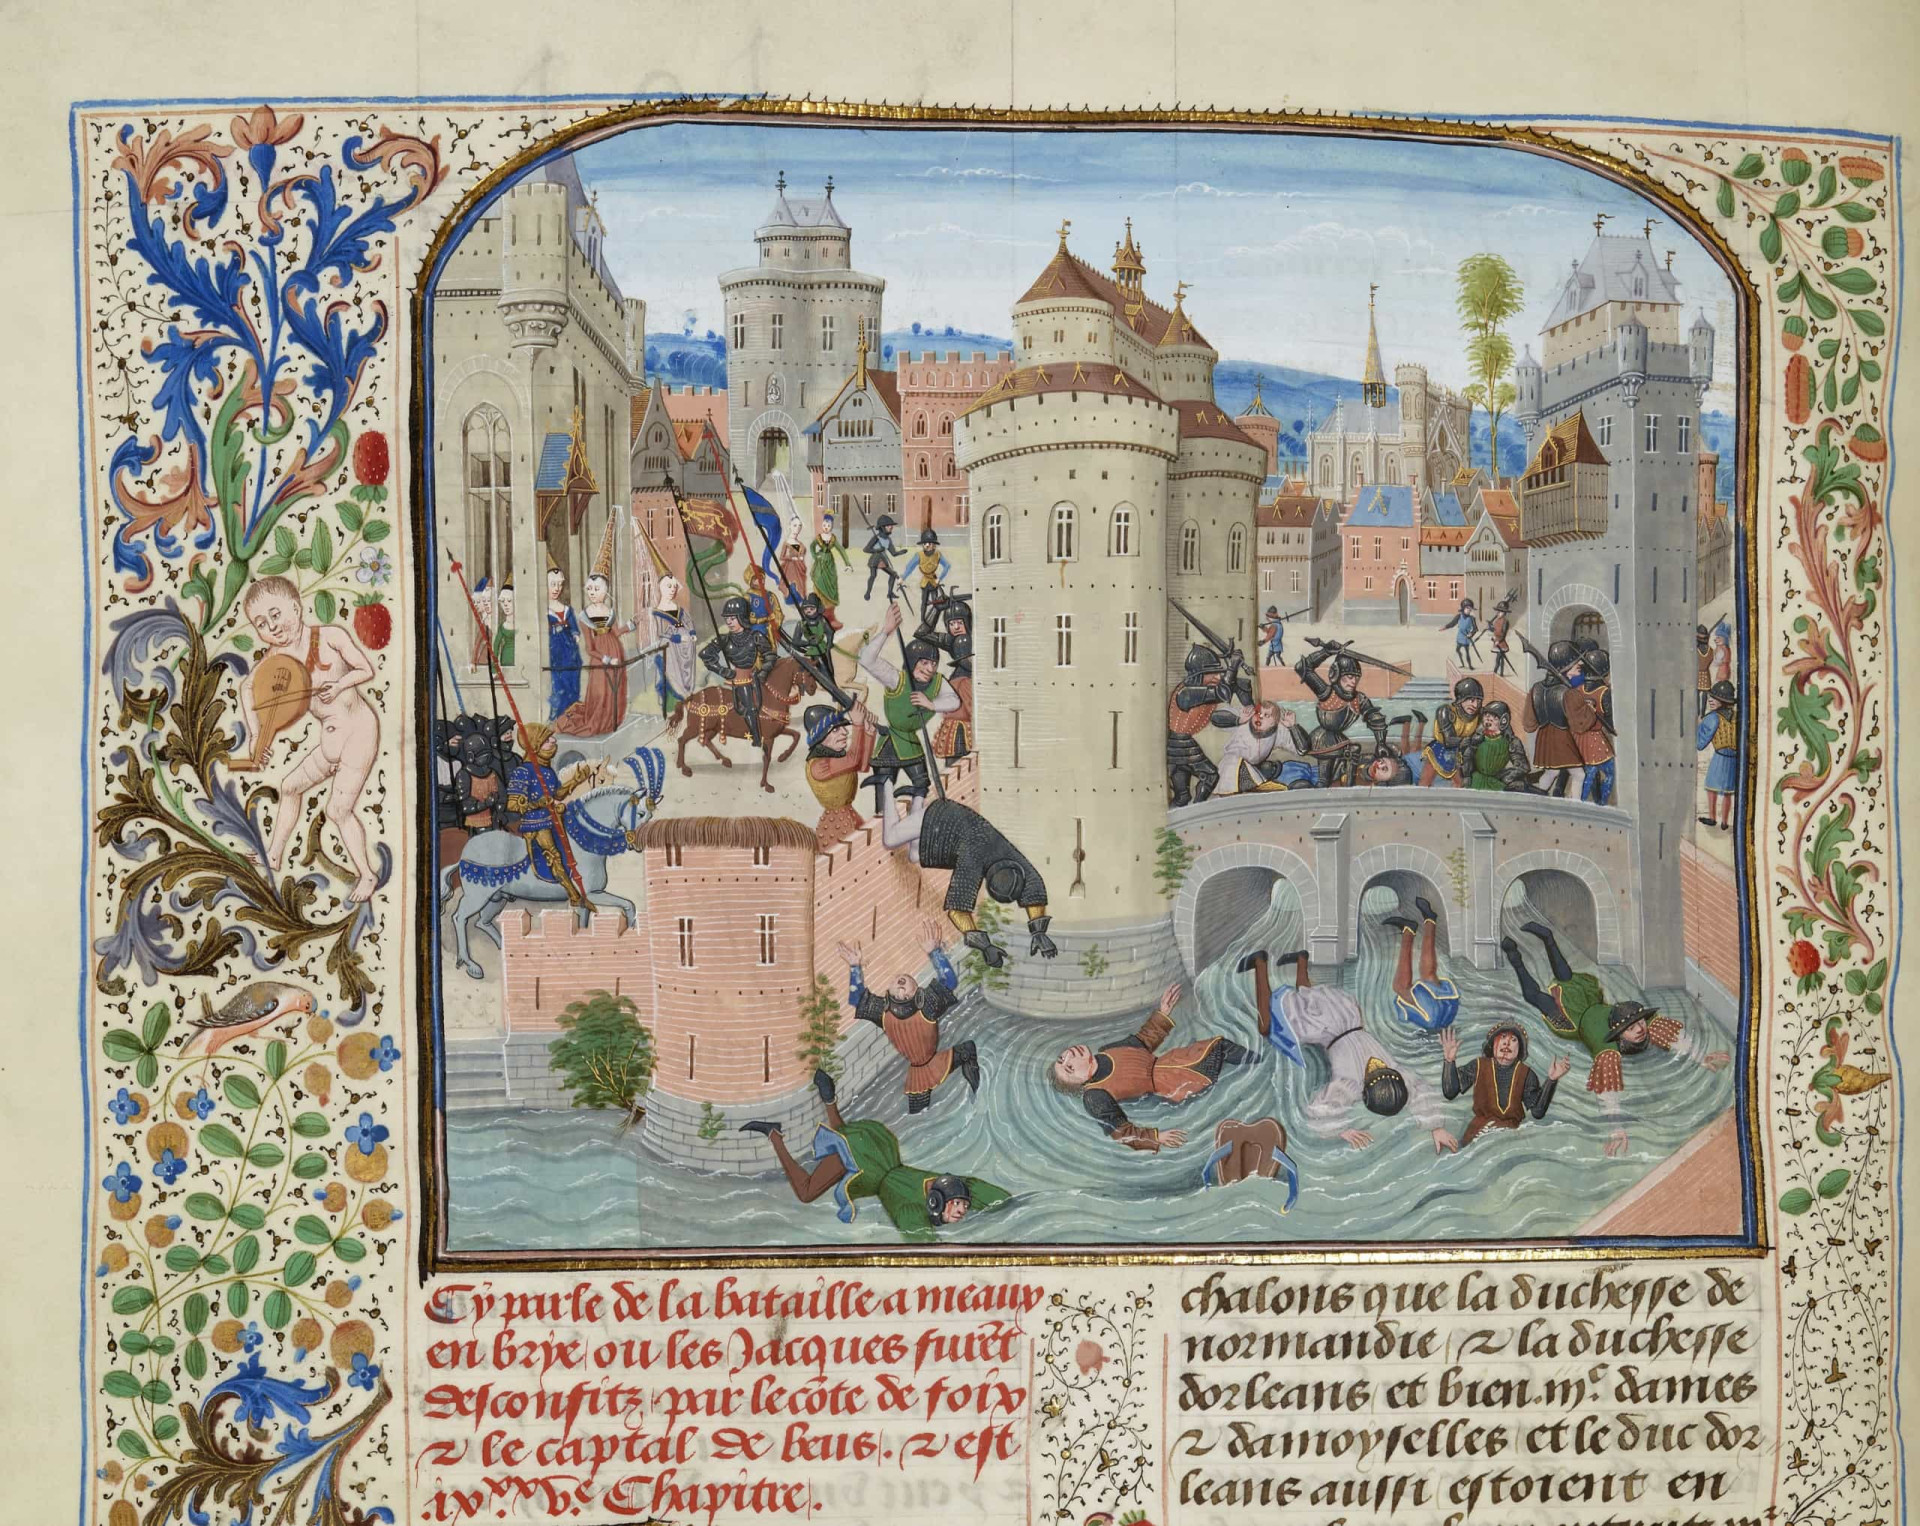 Cy parle de la bataille a meaux
en brye, ou les Jacques furēt
desconfitz, par le cōte de foix
⁊ le captal de beus. ⁊ est
.ixˣˣ.v.ᵉ Chapitre.
chalons que la duchesse de
normandie, ⁊ la duchesse
dorleans, et bien .iij.ᶜ dames
⁊ damoyselles, et le duc dor
leans aussi estoient en